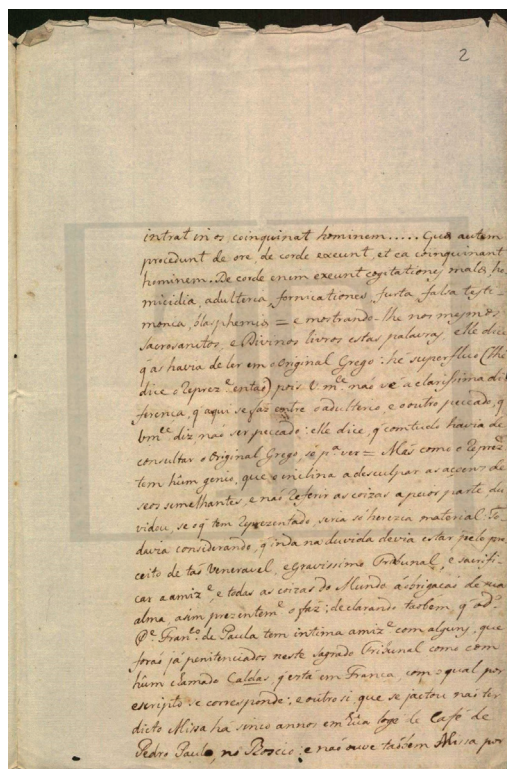 2
intrat in os, coinquinat hominem..... Quæ autem
procedunt de ore, de corde exeunt, et ea coinquinant
hominem. De corde enim exeunt cogitationes malæ, ho-
micidia, adulteria, fornicationes, furta, falsa testi-
monia, blasphemiæ = e mostrando-lhe nos mesmos
sacrosanctos, e Divinos livros estas palavras, elle dice
q̃ as havia de ler em o Original Grego: he superfluo (lhe
dice o Reprezte entaõ) pois V. mce naõ ve a clarissima di-
ferença, q̃ aqui se faz entre o adulterio, e o outro peccado, q̃
Vmce diz naõ ser peccado: elle dice, q̃ comtudo havia de
consultar o Original Grego, só pa ver = Mas como o Reprezte
tem hûm genio, que o inclina a desculpar as açoens de
seos semelhantes, e naõ referir as coizas a peor parte, du-
vidou, se o q̃ tem reprezentado, seria só herezia material. To-
davia considerando, q̃ inda na duvida devia estar pelo pre-
ceito de taõ Veneravel, e Gravissimo Tribunal, e sacrifi-
car a amize, e todas as coizas do Mundo á obrigaçaõ de sua
alma, asim prezenteme o faz; declarando taõbem, q̃ o do
Pe. Franco de Paula tem intima amize com alguns, que
foraõ já penitenciados neste sagrado Tribunal como com
hûm chamado Caldas q̃ está em França, com o qual por
escripto se corresponde; e outro si, que se jactou naõ ter
dicto Missa há sinco annos em hûa loge de Café de
Pedro Paulo, no Rocio; e naõ ouve taõbem Missa por